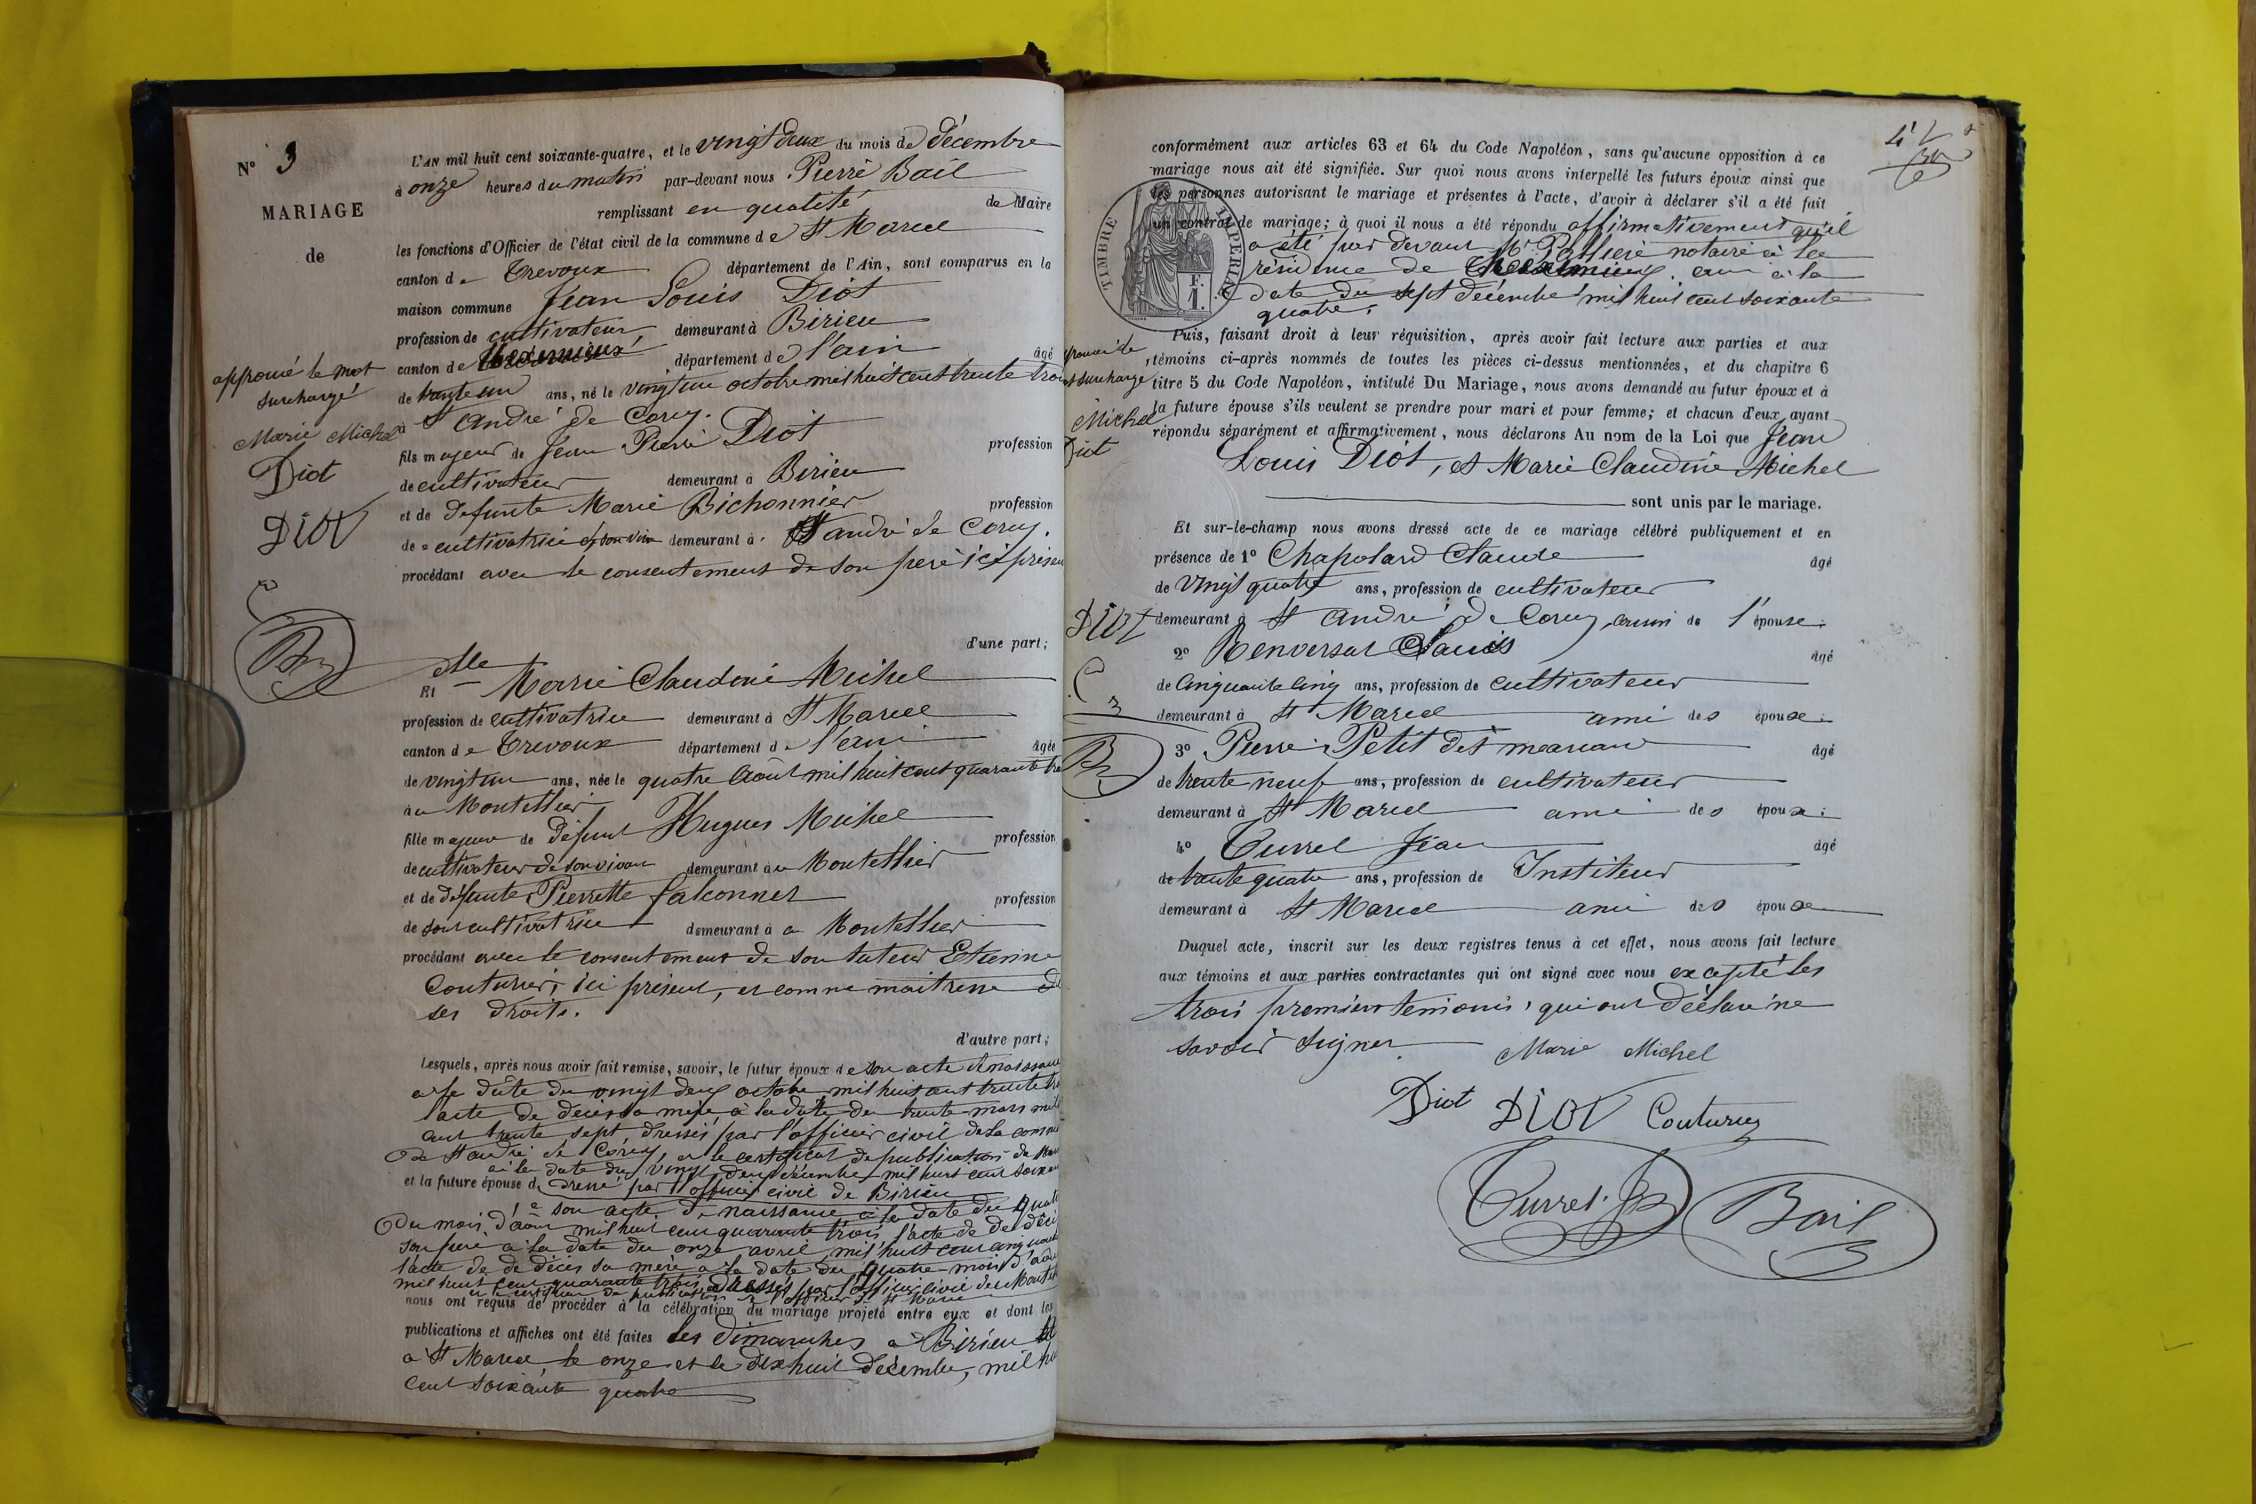 N° 3
MARIAGE
de
L'AN mil huit cent soixante-quatre, et le vingt deux du mois de décembre
à onze heures du matin par-devant nous Pierre Bail
remplissant en qualité de Maire
les fonctions d'Officier de l'état civil de la commune de St Marcel
canton de Trevoux département de l'Ain, sont comparus en la
maison commune Jean Louis Diot
profession de cultivateur demeurant à Birieu
canton de Meximieux département de l'ain âgé
de trente un ans, né le vingt un octobre mil huit cent trente trois
à St André de Corcy.
fils majeur de Jean Pierre Diot profession
de cultivateur demeurant à Birieu
et de defunte Marie Bichonnier profession
de cultivatrice de son viv demeurant à St andré de Corcy.
procédant avec le consentement de son père ici présen
d'une part;
approuvé le mot
surchargé
Marie Michel
Diot
DIOT
Et elle Marie Claudine Michel
profession de cultivatrice demeurant à St Marcel
canton de Trevoux département de l'ain âgée
de vingt un ans, née le quatre Août mil huit cent quarante tro
au Montellier
fille majeure de défunt Hugues Michel profession
de cultivateur de son vivan demeurant au Montellier
et de défunte Pierrette falconnet profession
de son cultivatrice demeurant à a Montellier
procédant avec le consentement de son tuteur Etienne
Couturier, ici présent, et comme maitresse de
ses droits.
d'autre part;
Lesquels, après nous avoir fait remise, savoir, le futur époux de son acte de naissance
a la date du vingt deux octobre mil huit cent trente tro
l'acte de décès sa mère à la date du trente mars mil
cent trente sept, dressés par l'officier civil de la comm
de St andré de Corcy, et le certificat de publication de
à la date du vingt deux décembre mil huit cent soixan
et la future épouse d dressé par l'officier civil de Birieu
son acte de naissance à la date du quatr
Du mois d'août mil huit cent quarante trois, l'acte de de décè
son père à la date du onze avril mil huit cent cinquante
l'acte de de décès sa mère a la date du quatre mois d'août
mil huit cent quarante trois dressés par l'officier civil du Montel
et le certificat de publication de l'officier de St Marcel
nous ont requis de procéder à la célébration du mariage projeté entre eux et dont les
publications et affiches ont été faites les dimanches a Birieu et
a St Marcel le onze et le dix huit décembre, mil hu
cent soixante quatre
conformément aux articles 63 et 64 du Code Napoléon, sans qu'aucune opposition à ce
mariage nous ait été signifiée. Sur quoi nous avons interpellé les futurs époux ainsi que
les personnes autorisant le mariage et présentes à l'acte, d'avoir à déclarer s'il a été fait
un contrat de mariage; à quoi il nous a été répondu affirmativement qu'il
a été par devant Mr notaire à la
résidence de Meximieux à la
date du sept décembre mil huit cent soixante
quatre.
TIMBRE IMPERIAL
F.
1.
Puis, faisant droit à leur réquisition, après avoir fait lecture aux parties et aux
témoins ci-après nommés de toutes les pièces ci-dessus mentionnées, et du chapitre 6
titre 5 du Code Napoléon, intitulé Du Mariage, nous avons demandé au futur époux et à
la future épouse s'ils veulent se prendre pour mari et pour femme; et chacun d'eux ayant
répondu séparément et affirmativement, nous déclarons Au nom de la Loi que Jean
Louis Diot, et Marie Claudine Michel
sont unis par le mariage.
surchargé
Michel
Diot
DIOT
Et sur-le-champ nous avons dressé acte de ce mariage célébré publiquement et en
présence de 1° Chapolard Claude âgé
de vingt quatre ans, profession de cultivateur
demeurant à St André de Corcy, cousin de l'épouse.
2° Renversat Claude âgé
de Cinquante cinq ans, profession de cultivateur
demeurant à St Marcel ami des époux.
3° Pierre Petit dit marian âgé
de trente neuf ans, profession de cultivateur
demeurant à St Marcel ami des époux.
4° Curvel Jean âgé
de trente quatre ans, profession de Institeur
demeurant à St Marcel ami des époux
Duquel acte, inscrit sur les deux registres tenus à cet effet, nous avons fait lecture
aux témoins et aux parties contractantes qui ont signé avec nous excepté les
trois premiers temoins, qui ont déclaré ne
savoir signer
Marie Michel
Diot DIOT Couturier
Curvel J. Bail